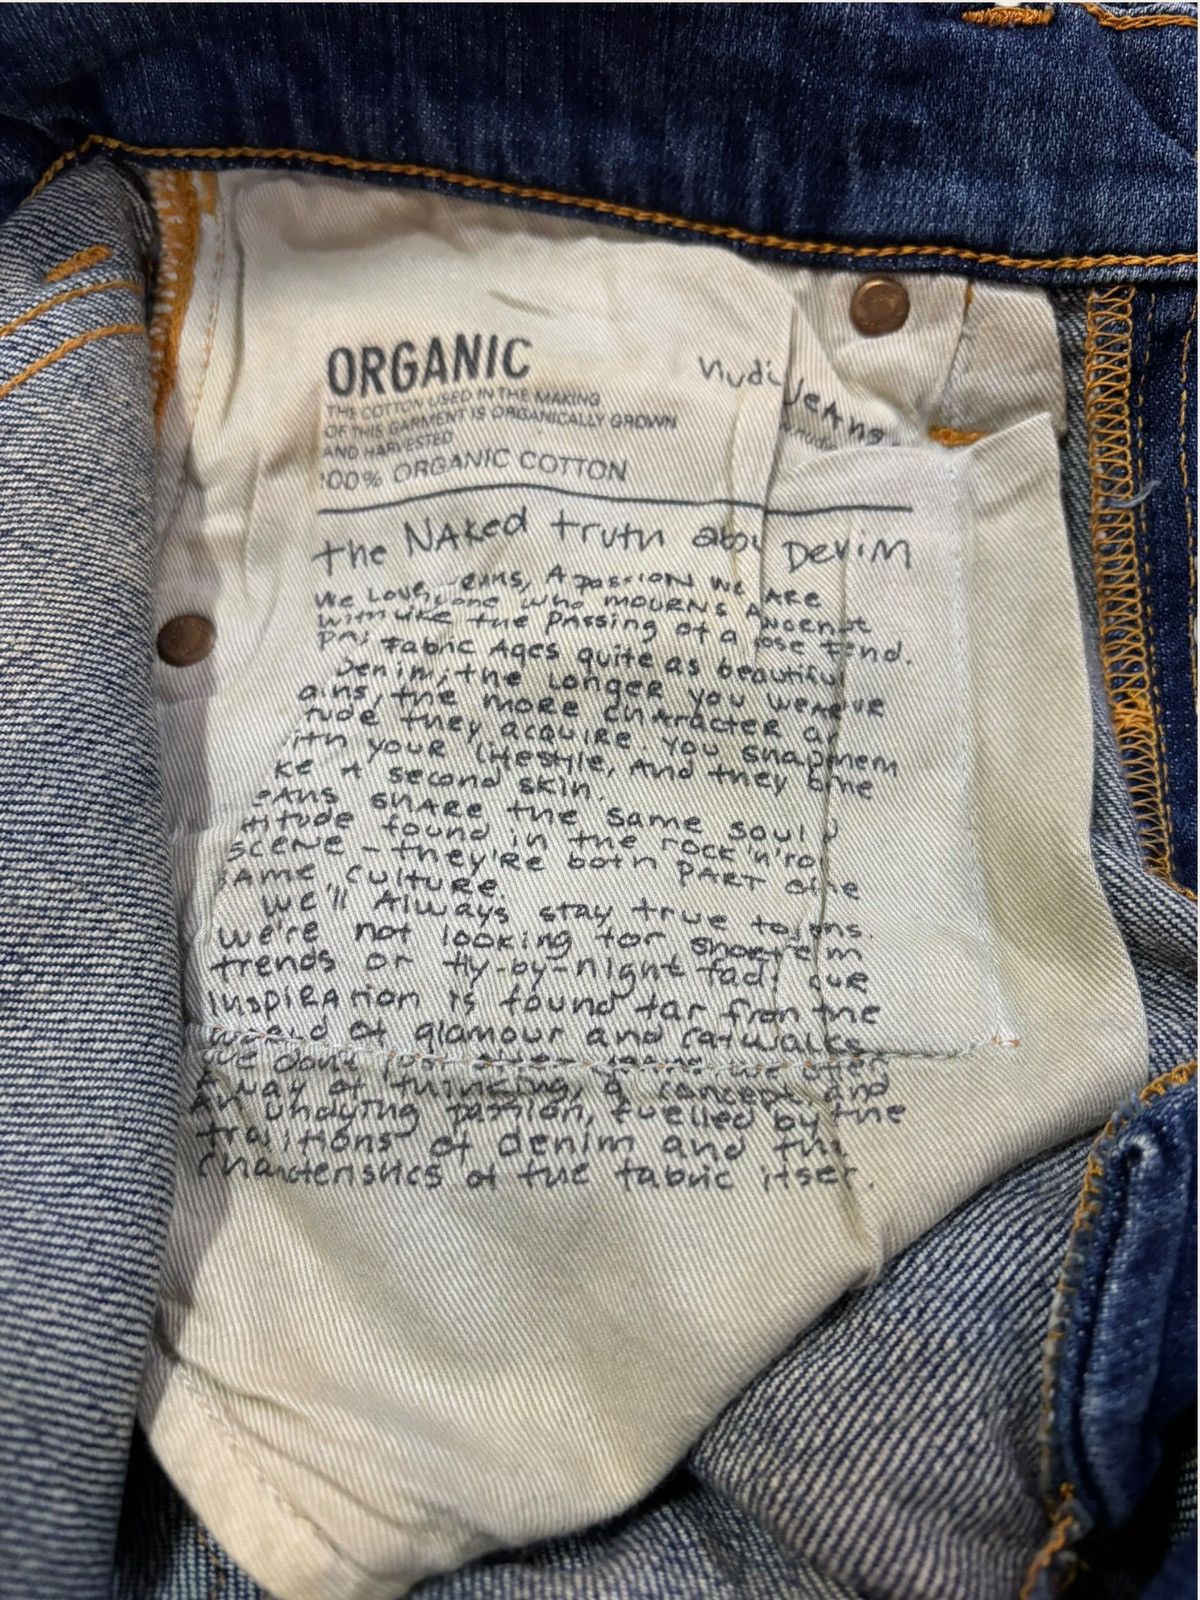 ORGANIC
THE COTTON USED IN THE MAKING
OF THIS GARMENT IS ORGANICALLY GROWN
AND HARVESTED
100% ORGANIC COTTON
Nudi Jeans
the NAKed truth abou DeniM
We Love eans, A passion We ARE
who mourns A
the passing of a ose
Fabric Ages quite as beautiful
Denim, the Longer you we
ains, the more character a
tude they acquire. You shap hem
ith your Lifestyle, And they b me
ke A second skin.
eans share the same soul
titude found in the rock'n'rol
scene - they're both PART o he
same culture.
We'll Always stay true to
We're not looking for short e m
trends or fly-by-night fads our
InspiRAtion is found far from the
world of glamour and catwalks
We don't we offer
A way of thinking, a concept and
An undying passion, fuelled by the
traditions of denim and the
characteristics of the fabric itself.